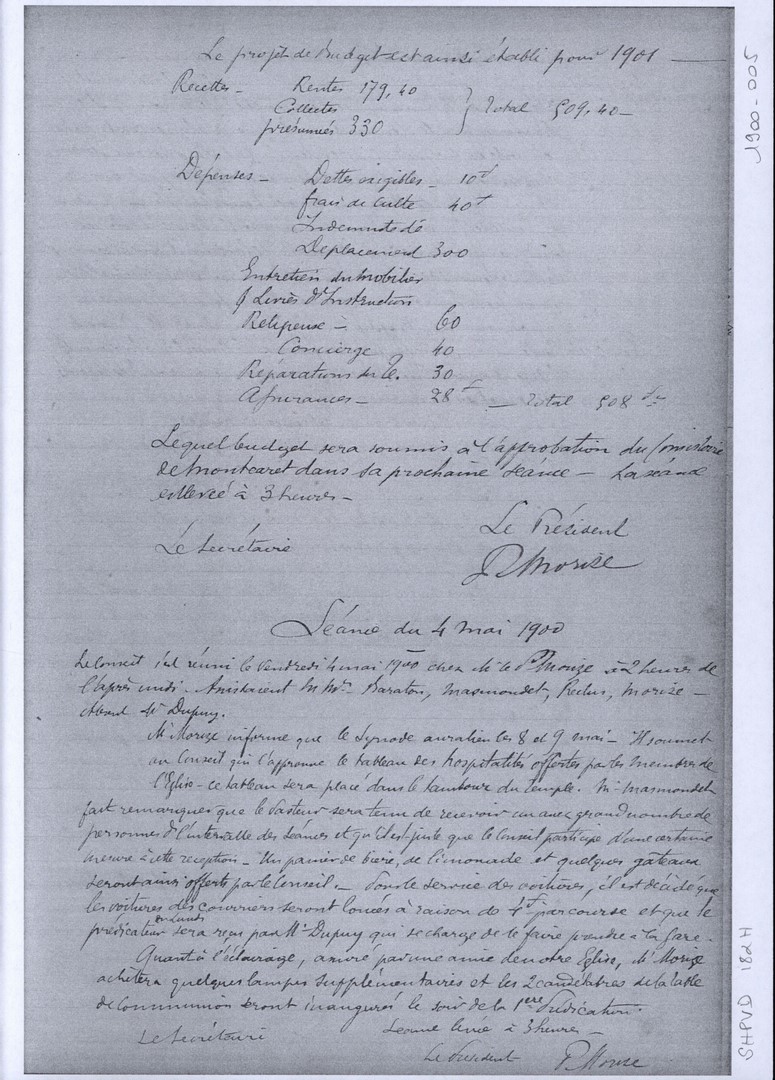 Le projet de Budget est ainsi établi pour 1901
Recettes - Rentes 179,40
Collectes
présumées 330 } Total 509,40
Dépenses - Dettes exigibles - 10f
frais de culte 40f
Indemnité de
Déplacement 300
Entretien du Mobilier
& Livres d'Instruction
Religieuse - 60
Concierge 40
Réparations du T. 30
Assurances - 28f - Total 508 f
Lequel budget sera soumis à l'approbation du Consistoire
de Montcaret dans sa prochaine séance - La séance
est levée à 3 heures -
Le Président
Le Secrétaire
P Morize
Séance du 4 mai 1900
Le Conseil s'est réuni le Vendredi 4 mai 1900 chez Mr le P. Morize à 2 heures de
l'après midi. Assistaient MMrs Baraton, Masmondet, Reclus, Morize -
Absent Mr Dupuy.
Mr Morize informe que le Synode aura lieu les 8 et 9 mai - Il soumet
au Conseil qui l'approuve le tableau des hospitalités offertes par les membres de
l'Eglise - ce tableau sera placé dans le tambour du temple. Mr Masmondet
fait remarquer que le Pasteur sera tenu de recevoir un assez grand nombre de
personnes à l'intervalle des séances et qu'il est juste que le Conseil participe d'une certaine
mesure à cette réception - Un panier de bière, de limonade et quelques gâteaux
seront ainsi offerts par le Conseil - Pour le service des voitures, il est décidé que
les voitures des courriers seront louées à raison de 1f par course et que le
prédicateur du Lundi sera reçu par Mr Dupuy qui se charge de le faire prendre à la Gare.
Quant à l'éclairage, assuré par une amie de notre Eglise, Mr Morize
achètera quelques lampes supplémentaires et les 2 candélabres de la table
de Communion seront inaugurés le soir de la 1ere Prédication.
Séance levée à 3 heures -
Le Secrétaire
Le Président P Morize
1900-005
SHPVD 182H